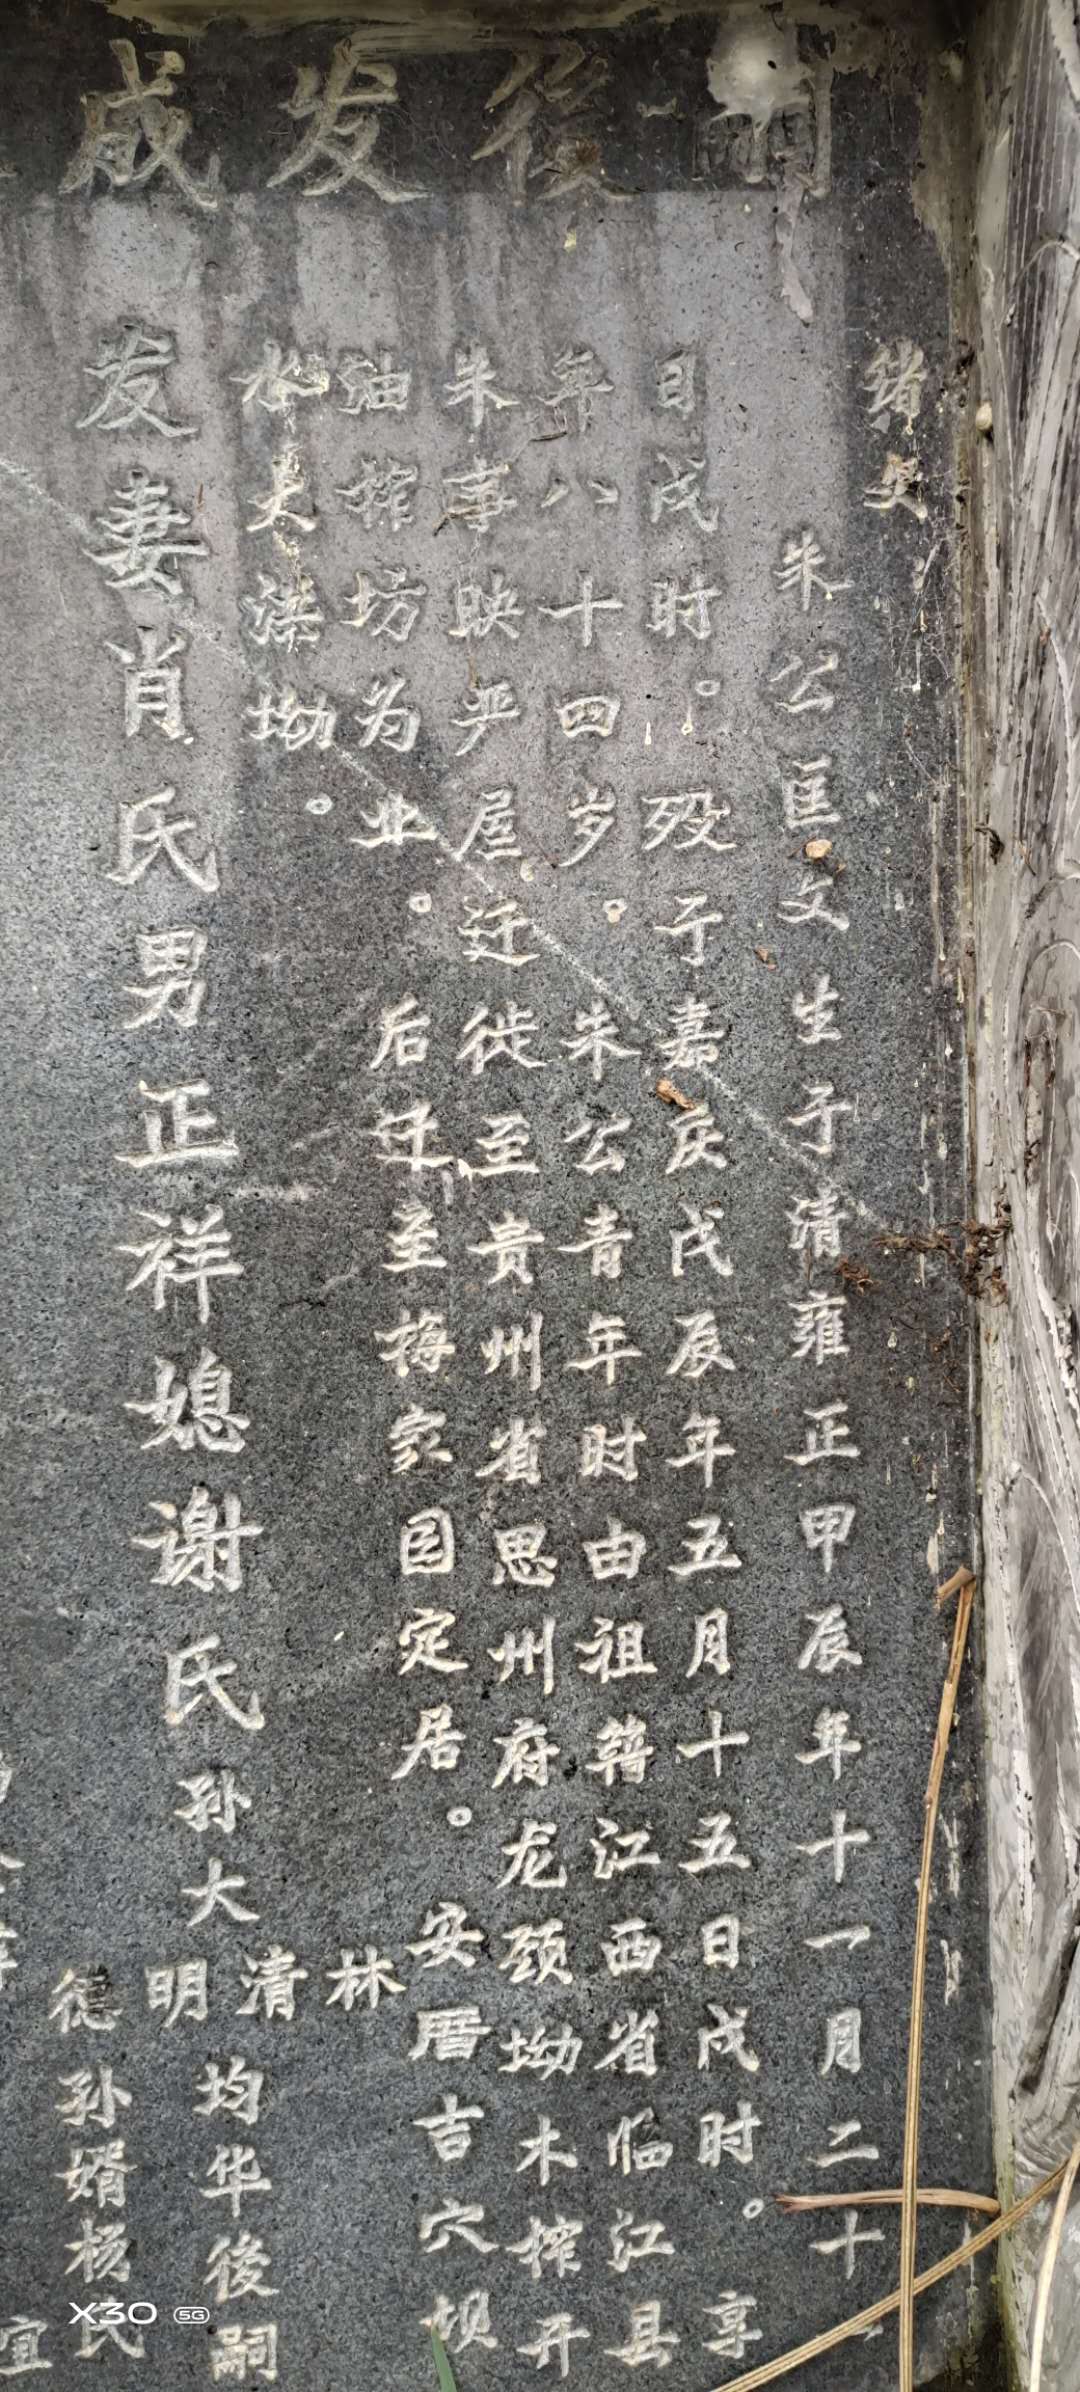 嗣後发成
绪史
朱公匡文生于清雍正甲辰年十一月二十
目戌时。殁于嘉庆戊辰年五月十五日戌时。享
年八十四岁。朱公青年时由祖籍江西省临江县
朱事映严屋迁徙至贵州省思州府龙颈坳木榨开
油榨坊为业。后迁至梅家园定居。安厝吉穴坝
水美溪坳。
发妻肖氏男正祥媳谢氏孙大
林
清
明
德
均华後嗣
孙婿杨氏
宜
X30 5G